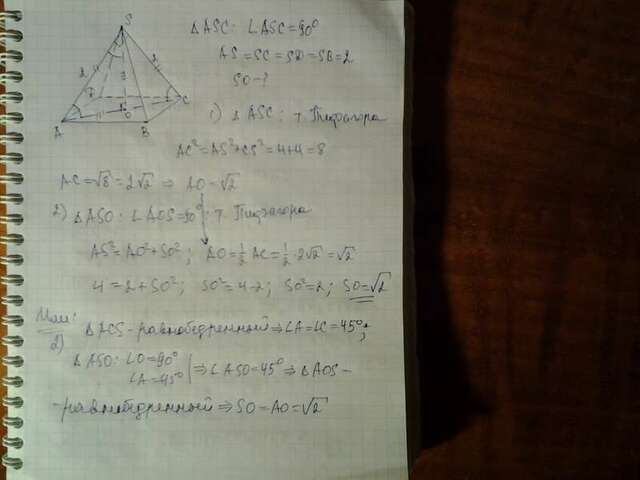 S
2
2
D
C
A
O
B
Δ ASC: ∠ASC = 90°
AS = SC = SD = SB = 2
SO - ?
1) Δ ASC: т. Пифагора
AC² = AS² + CS² = 4+4 = 8
AC = √8 = 2√2 ⇒ AO = √2
2) Δ ASO: ∠AOS = 90°: т. Пифагора
AS² = AO² + SO²; AO = 1/2 AC = 1/2 · 2√2 = √2
4 = 2 + SO²; SO² = 4-2; SO² = 2; SO = √2
Или:
2) Δ ACS - равнобедренный ⇒ ∠A = ∠C = 45°;
Δ ASO: ∠O = 90°
∠A = 45° | ⇒ ∠ASO = 45° ⇒ Δ AOS -
- равнобедренный ⇒ SO = AO = √2